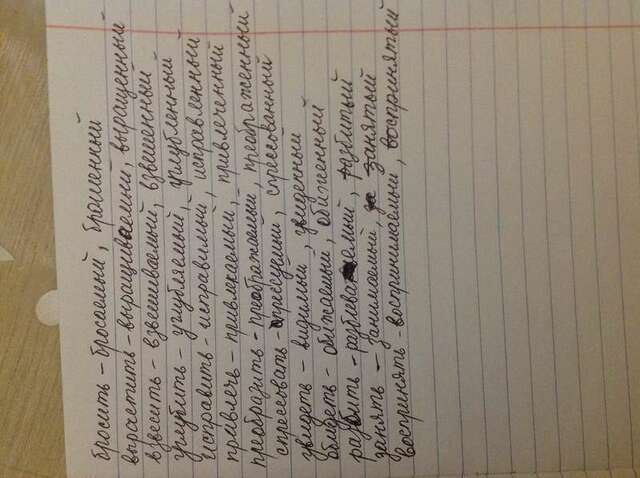 бросить – бросаемый, брошенный
вырастить – выращиваемый, выращенный
взвесить – взвешиваемый, взвешенный
углубить – углубляемый, углубленный
исправить – исправимый, исправленный
привлечь – привлекаемый, привлеченный
преобразить – преображаемый, преображенный
спрессовать – прессуемый, спрессованный
увидеть – видимый, увиденный
обидеть – обижаемый, обиженный
разбить – разбиваемый, разбитый
занять – занимаемый, занятый
воспринять – воспринимаемый, воспринятый